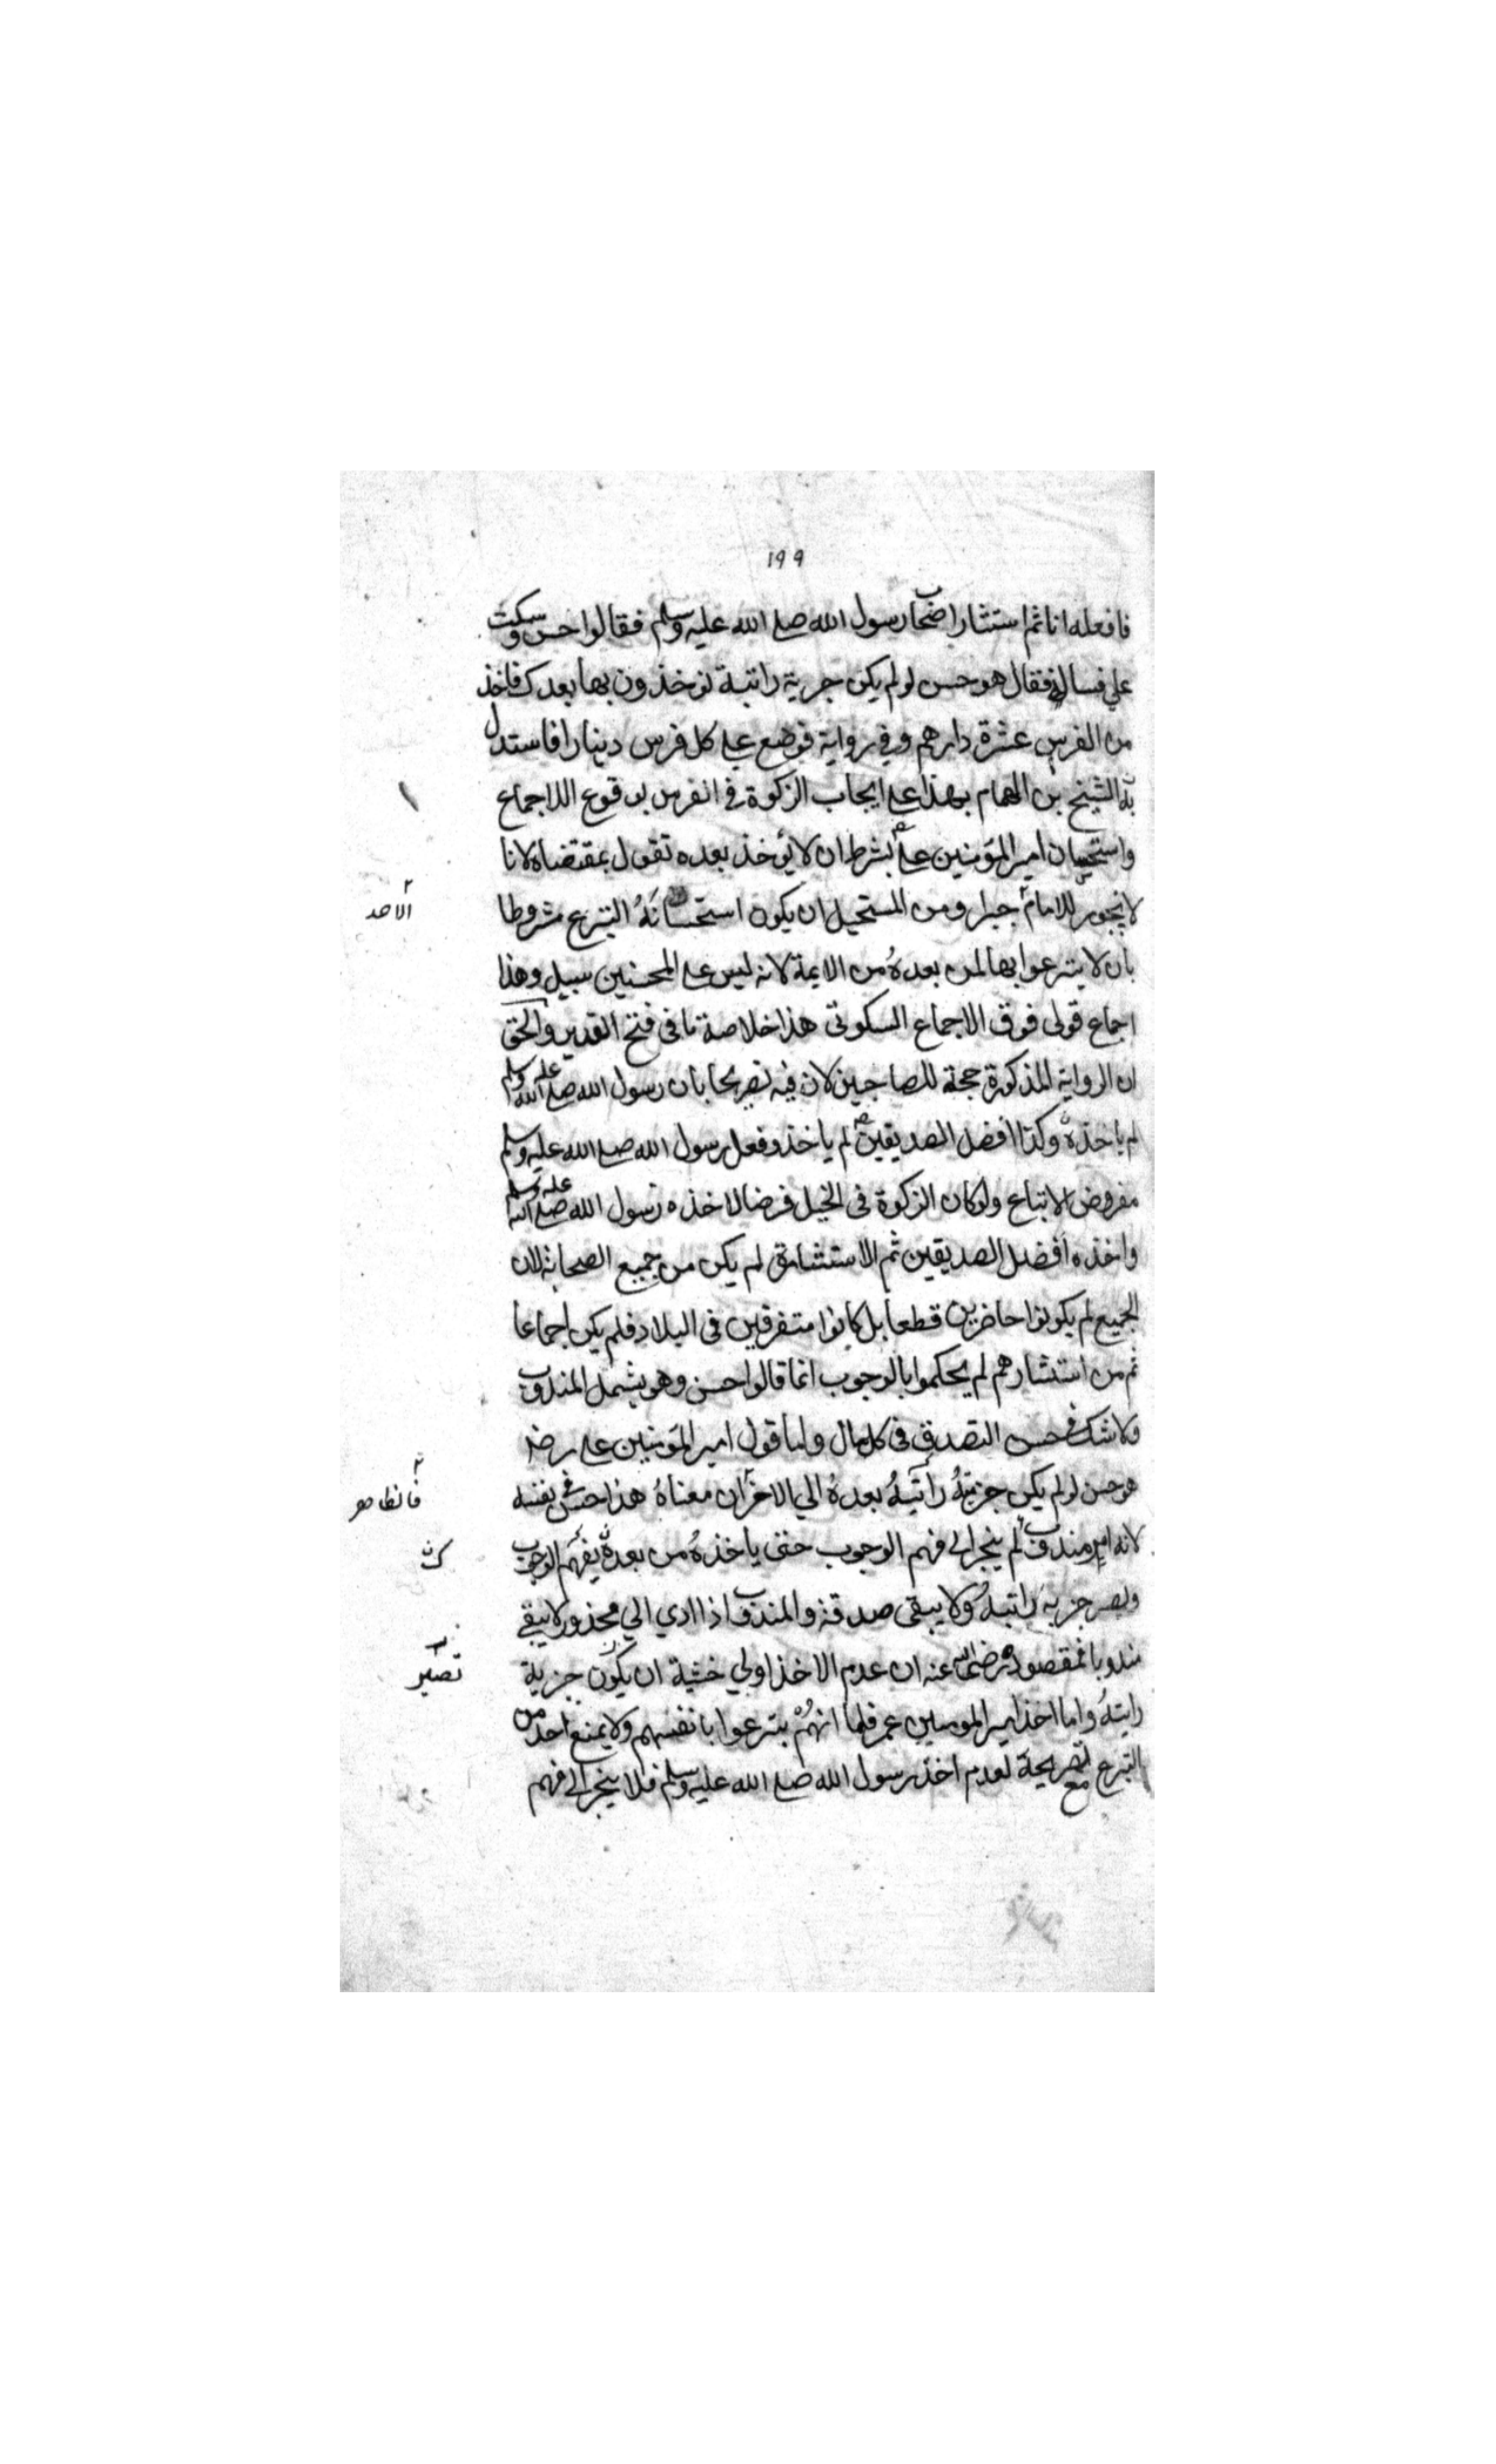 ١٩٩
فافعله انا ثم استشار اصحاب رسول الله صلى الله عليه وسلم فقالوا حسن وسكت
علي فساله فقال هو حسن لو لم يكن جرية راتبة توخذون بها بعدك فاخذ
من الفرس عشرة دارهم وفي رواية فوضع على كل فرس دينارا فاستدل
به الشيخ بن الهمام بهذا على ايجاب الزكوة في الفرس بوقوع الاجماع
واستحسان امير المؤمنين على بشرط ان لا يؤخذ بعده تقول بمقتضاه لانا
لا نجوز للامام جبرا ومن المستحيل ان يكون استحسانه التبرع مشروطا
الاخذ
بان لا يتبرعوا بها لمن بعده من الايمة لانه ليس على المحسنين سبيل وهذا
اجماع قولى فوق الاجماع السكوتى هذا خلاصة ما فى فتح القدير والحق
ان الرواية المذكورة حجة للصاحبين لان فيه تصريحا بان رسول الله صلى الله عليه وسلم
لم ياخذه وكذا افضل الصديقين لم ياخذ وفعل رسول الله صلى الله عليه وسلم
مفروض الاتباع ولو كان الزكوة فى الخيل فرضا لاخذه رسول الله صلى الله عليه وسلم
واخذه افضل الصديقين ثم الاستشارة لم يكن من جميع الصحابة لان
الجميع لم يكونوا حاضرين قطعا بل كانوا متفرقين فى البلاد فلم يكن اجماعا
ثم من استشارهم لم يحكموا بالوجوب انما قالوا حسن وهو يشمل المندوب
ولا شك فى حسن التصدق فى كل مال واما قول امير المؤمنين على رضـ
هو حسن لو لم يكن جزية راتبة بعده الي الاخر ان معناه هذا حسن فى نفسه
فالظاهر
لانه امر مندوب لم ينجر الى فهم الوجوب حتى ياخذه من بعده يفهم الوجوب
ويصير جزية راتبة ولا يبقى صدقة والمندوب اذا ادي الي محذور لا يبقى
مندوبا فمقصوده رضى الله عنه ان عدم الاخذ اولي خشية ان يكون جزية
تصير
راتبة واما اخذ امير المومنين عمر فلما انهم يتبرعوا بانفسهم ولا يمنع احد من
التبرع مع تصريحه لعدم اخذ رسول الله صلى الله عليه وسلم فلا ينجر الى فهم